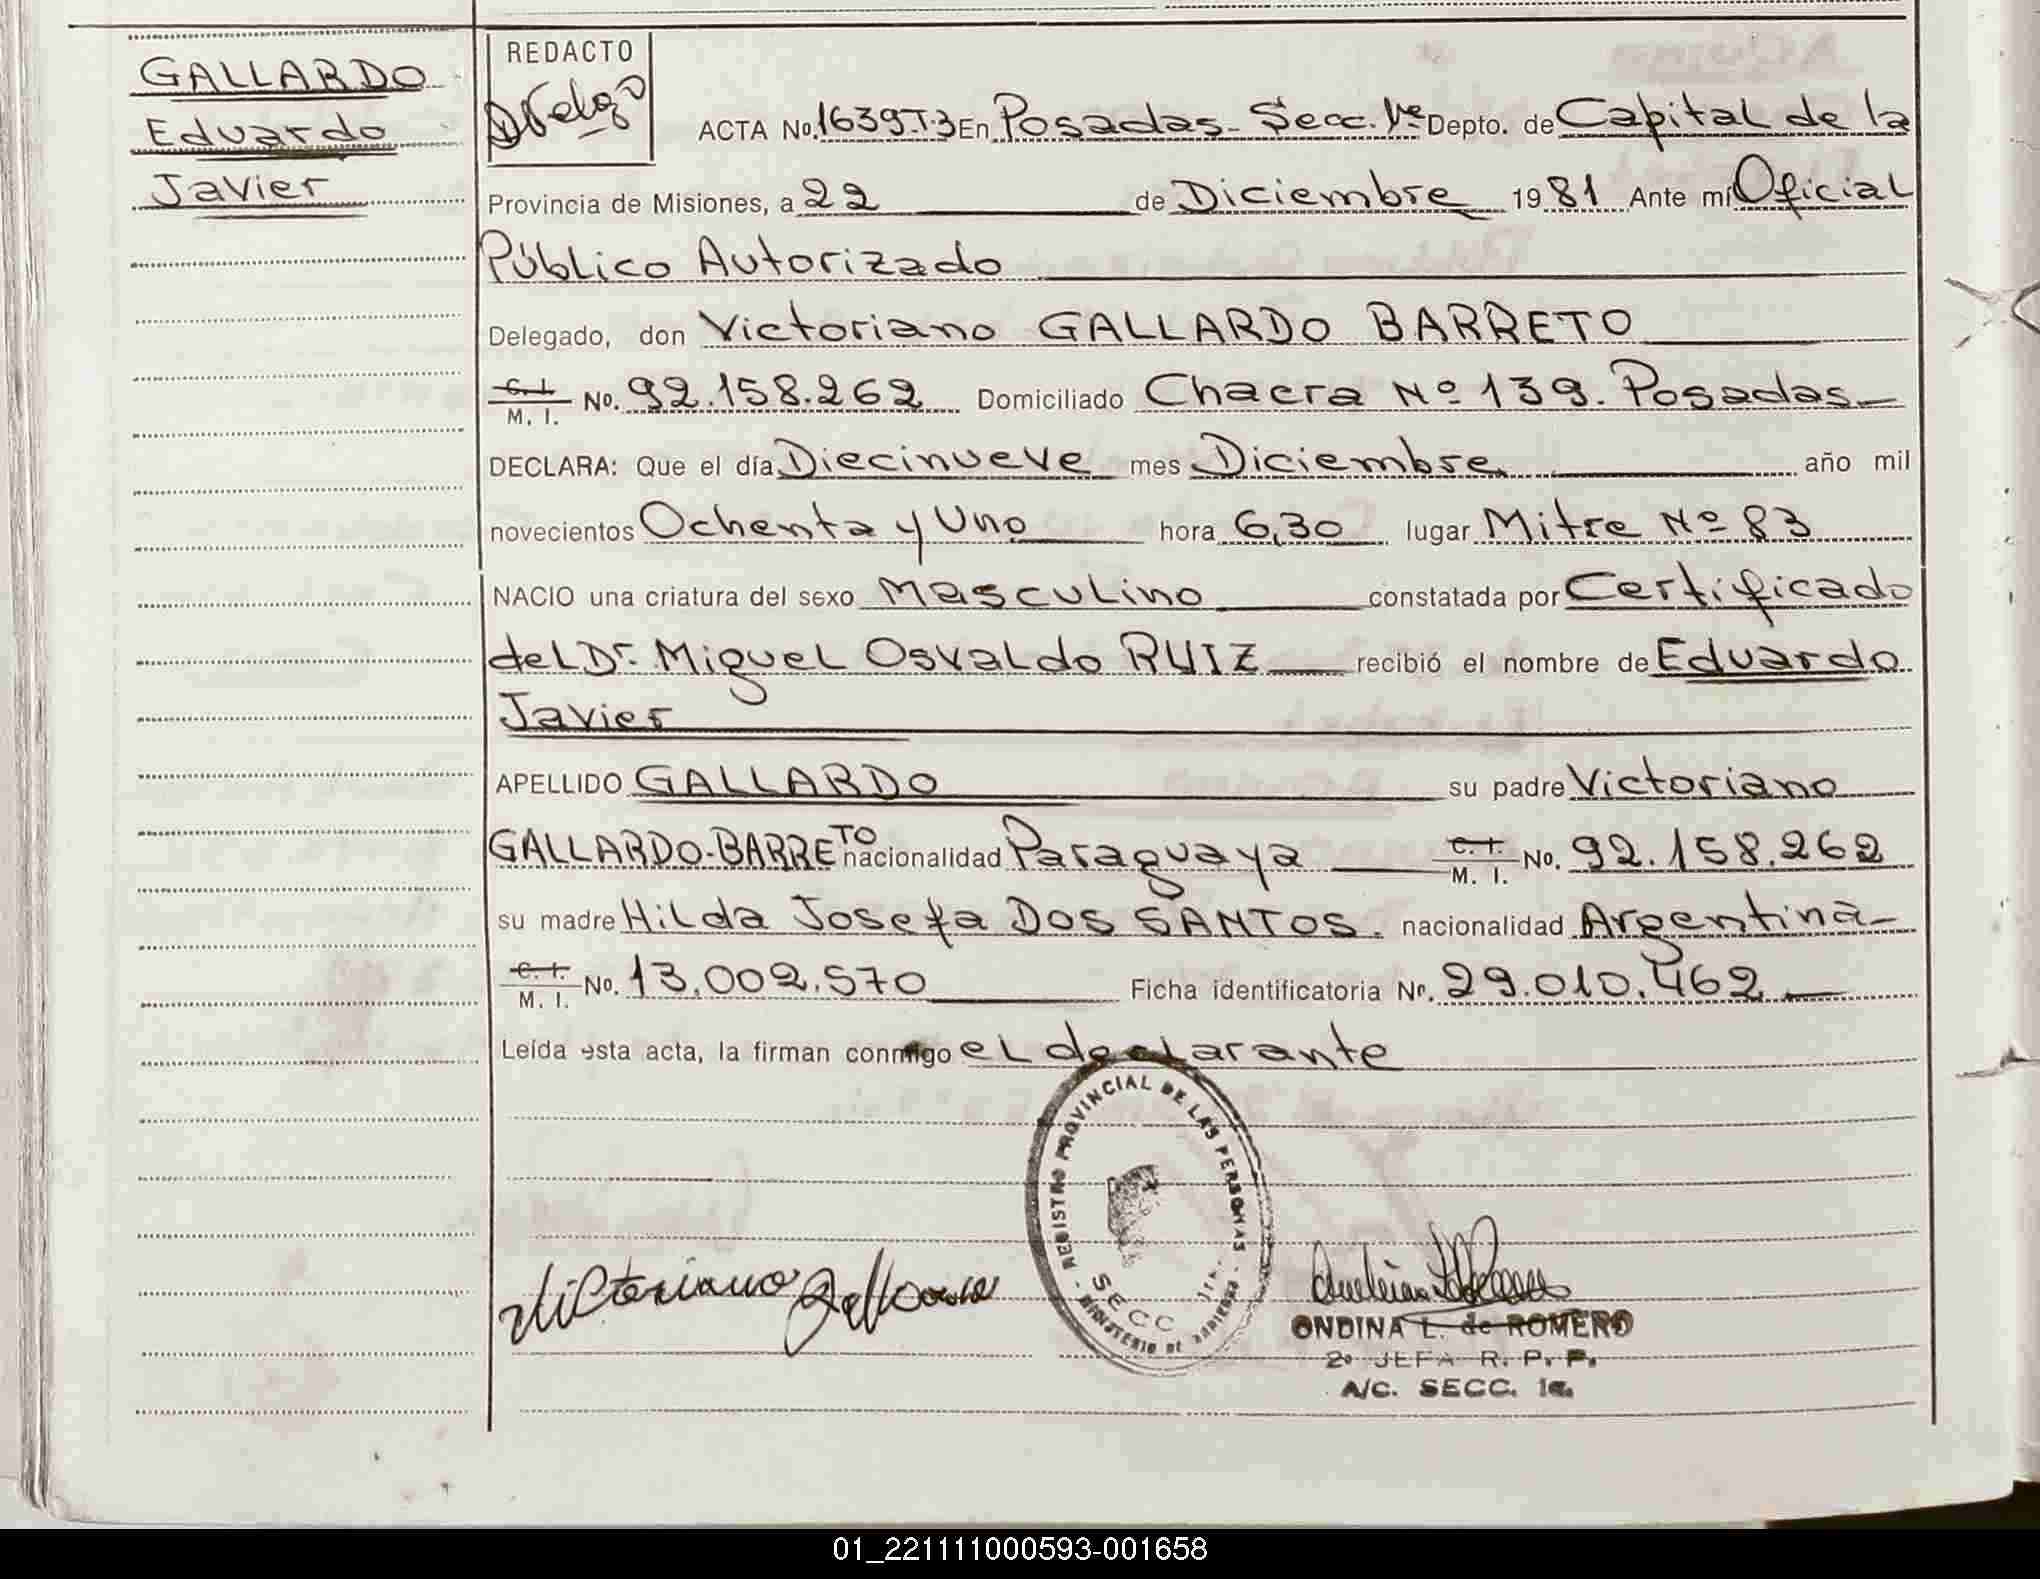 GALLARDO
Eduardo
Javier
REDACTO
ACTA No. 1639 T.3 En Posadas - Secc. 1ª Depto. de Capital de la
Provincia de Misiones, a 22 de Diciembre 1981 Ante mí Oficial
Público Autorizado
Delegado, don Victoriano GALLARDO BARRETO
C. I. M. I. No. 92.158.262 Domiciliado Chacra Nº 139. Posadas
DECLARA: Que el día Diecinueve mes Diciembre año mil
novecientos Ochenta y Uno hora 6,30 lugar Mitre Nº 83
NACIO una criatura del sexo Masculino constatada por Certificado
del Dr. Miguel Osvaldo RUIZ recibió el nombre de Eduardo
Javier
APELLIDO GALLARDO su padre Victoriano
GALLARDO-BARRETO nacionalidad Paraguaya C. I. M. I. No. 92.158.262
su madre Hilda Josefa DOS SANTOS. nacionalidad Argentina
C. I. M. I. No. 13.002.570 Ficha identificatoria No. 29.010.462
Leída esta acta, la firman conmigo el declarante
REGISTRO PROVINCIAL DE LAS PERSONAS
SECC 1ra.
MINISTERIO DE
Victoriano Gallardo
ONDINA L. de ROMERO
2º JEFA R. P. P.
A/C. SECC. 1a.
01_221111000593-001658